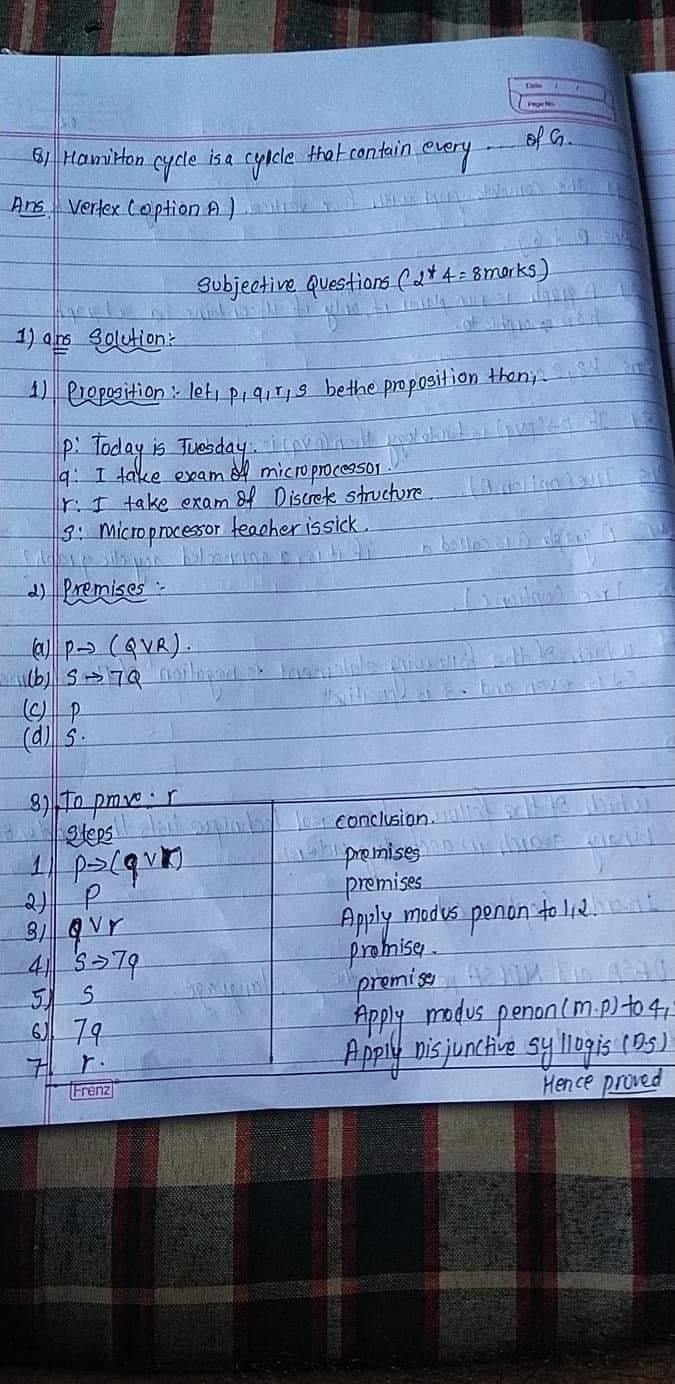 Date / /
Page No.
8) Hamilton cycle is a cylcle that contain every --- of G.
Ans. Vertex (option A)
Subjective Questions (2*4=8marks)
1) ans Solution:-
1) Proposition :- let, p, q, r, s be the proposition then,
p: Today is Tuesday.
q: I take exam of microprocessor.
r: I take exam of Discrete structure
s: Microprocessor teacher is sick.
2) Premises :-
(a) p→ (QVR).
(b) S→ 7Q
(c) p
(d) s.
3) To prove: r
Steps conclusion.
1) p→(qvr) premises
2) p premises
3) qvr Apply modus penon to 1,2.
4) S→7q premise.
5) s premise
6) 7q Apply modus penon (m.p) to 4,
7) r. Apply Disjunctive syllogis (DS)
Hence proved
Frenz